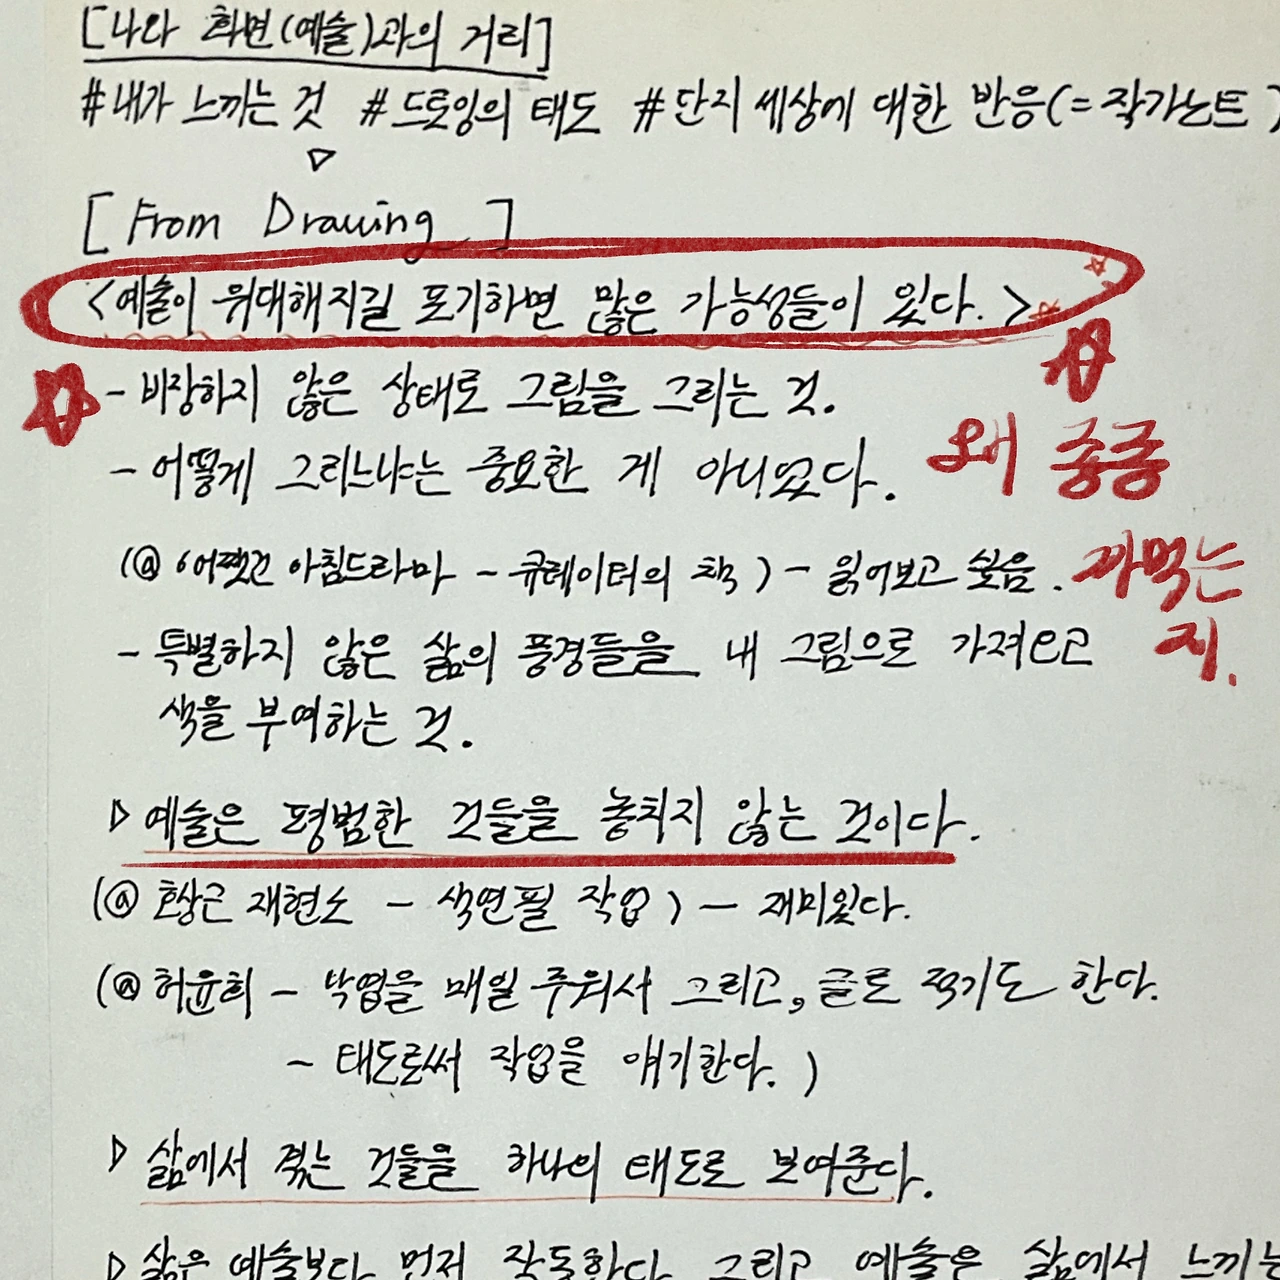 [나와 화면(예술)과의 거리]
#내가 느끼는 것 #드로잉의 태도 #단지 세상에 대한 반응(=작가노트)
▽
[From Drawing]
<예술이 위대해지길 포기하면 많은 가능성들이 있다.>
- 비장하지 않은 상태로 그림을 그리는 것.
- 어떻게 그리느냐는 중요한 게 아니었다.
왜 종종
(@ 어쨌건 아침드라마 - 큐레이터의 책) - 읽어보고 싶음.
까먹는
지.
- 특별하지 않은 삶의 풍경들을 내 그림으로 가져오고
색을 부여하는 것.
▷ 예술은 평범한 것들을 놓치지 않는 것이다.
(@ 호상근 재현소 - 색연필 작업) - 재미있다.
(@ 허윤희 - 낙엽을 매일 주워서 그리고, 글로 적기도 한다.
- 태도로써 작업을 얘기한다.)
▷ 삶에서 겪는 것들을 하나의 태도로 보여준다.
▷ 삶은 예술보다 먼저 작동한다. 그리고 예술은 삶에서 느끼는